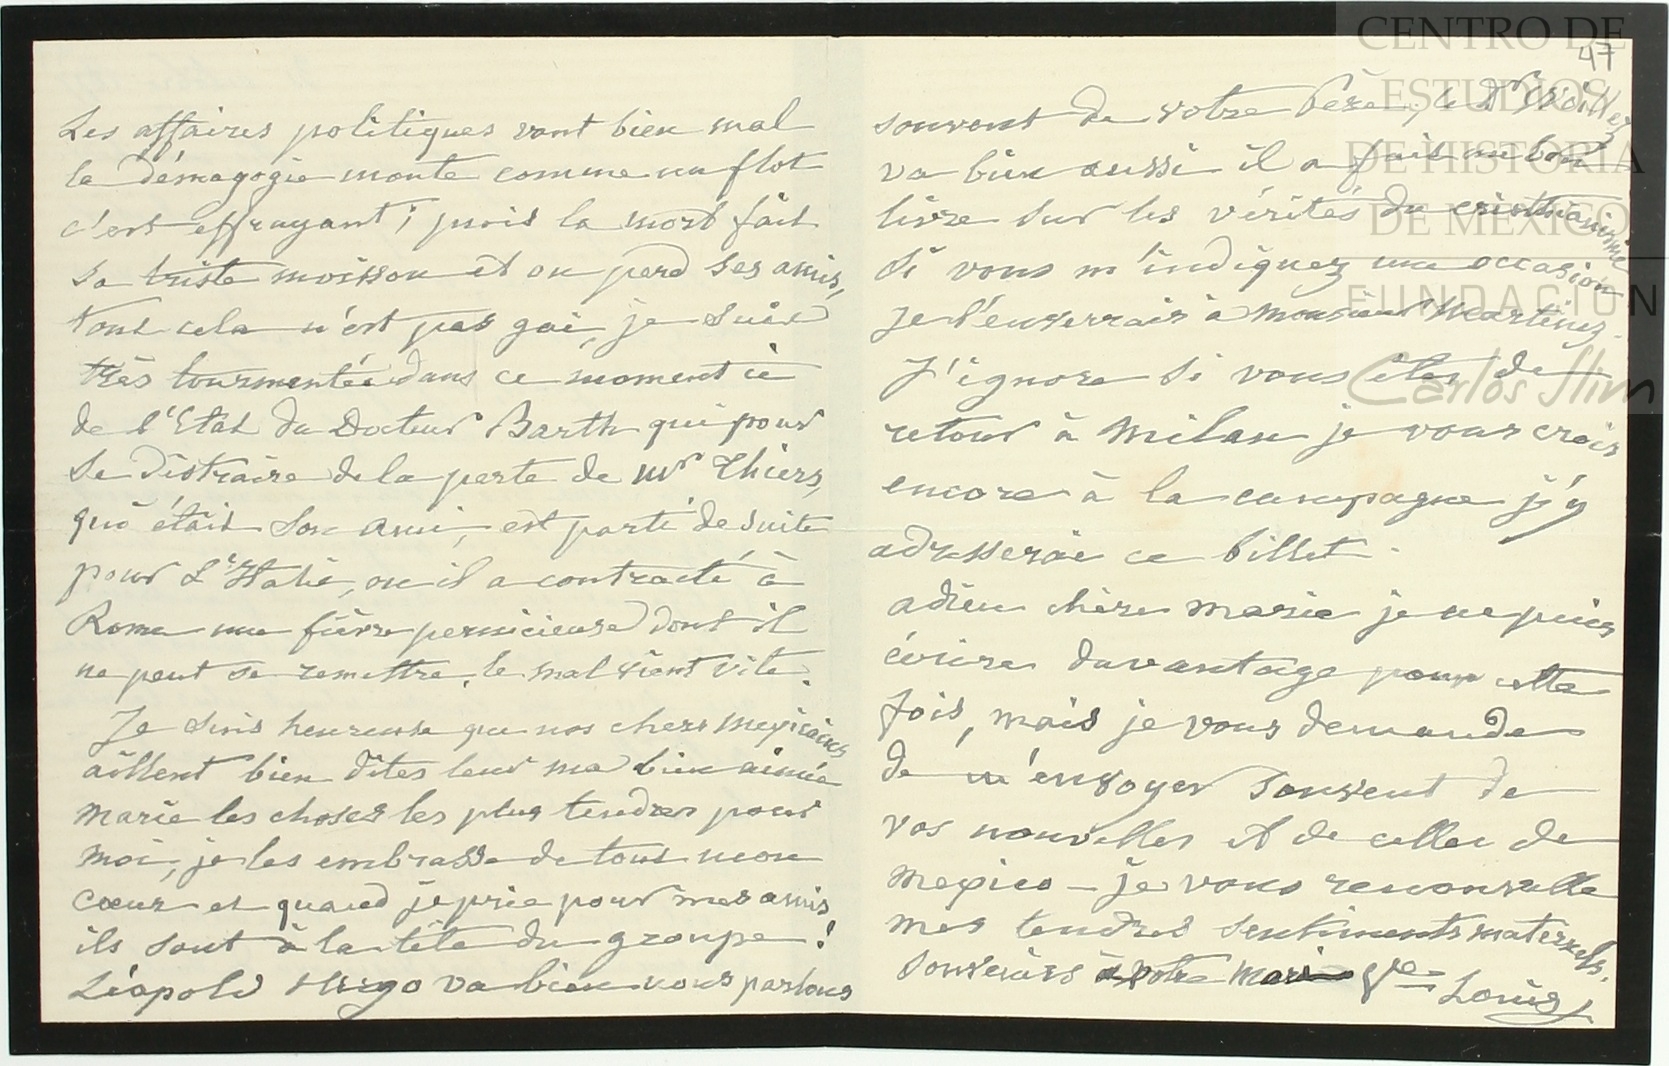 Les affaires politiques vont bien mal
la démagogie monte comme un flot
c'est effrayant ; puis la mort fait
sa triste moisson et on perd ses amis,
tout cela n'est pas gai, je suis
très tourmentée dans ce moment ci
de l'Etat du Docteur Barth qui pour
se distraire de la perte de Mr Thiers,
qui était son ami, est parti de suite
pour L'Italie, ou il a contracté à
Rome une fièvre pernicieuse dont il
ne peut se remettre, le mal vient vite.
Je suis heureuse que nos chers mexicains
aillent bien dites leur ma bien aimée
Marie les choses les plus tendres pour
moi, je les embrasse de tout mon
cœur et quand je prie pour mes amis
ils sont à la tête du groupe !
Léopold Hugo va bien nous parlons
47
souvent de votre Père, le Dr
va bien aussi il a fait un bon
livre sur les vérités du cristhianisme
Si vous m'indiquez une occasion
je l'enverrais à Monsieur Martinez.
J'ignore si vous êtes de
retour à Milan je vous crois
encore à la campagne j'y
adresserai ce billet.
adieu chère Marie je ne puis
écrire davantage pour cette
fois, mais je vous demande
de m'envoyer souvent de
vos nouvelles et de celles de
Mexico - je vous renouvelle
mes tendres sentiments maternels.
Souvenirs à votre Mari Vve Louis
CENTRO DE
ESTUDIOS
DE HISTORIA
DE MÉXICO
FUNDACIÓN
Carlos Slim